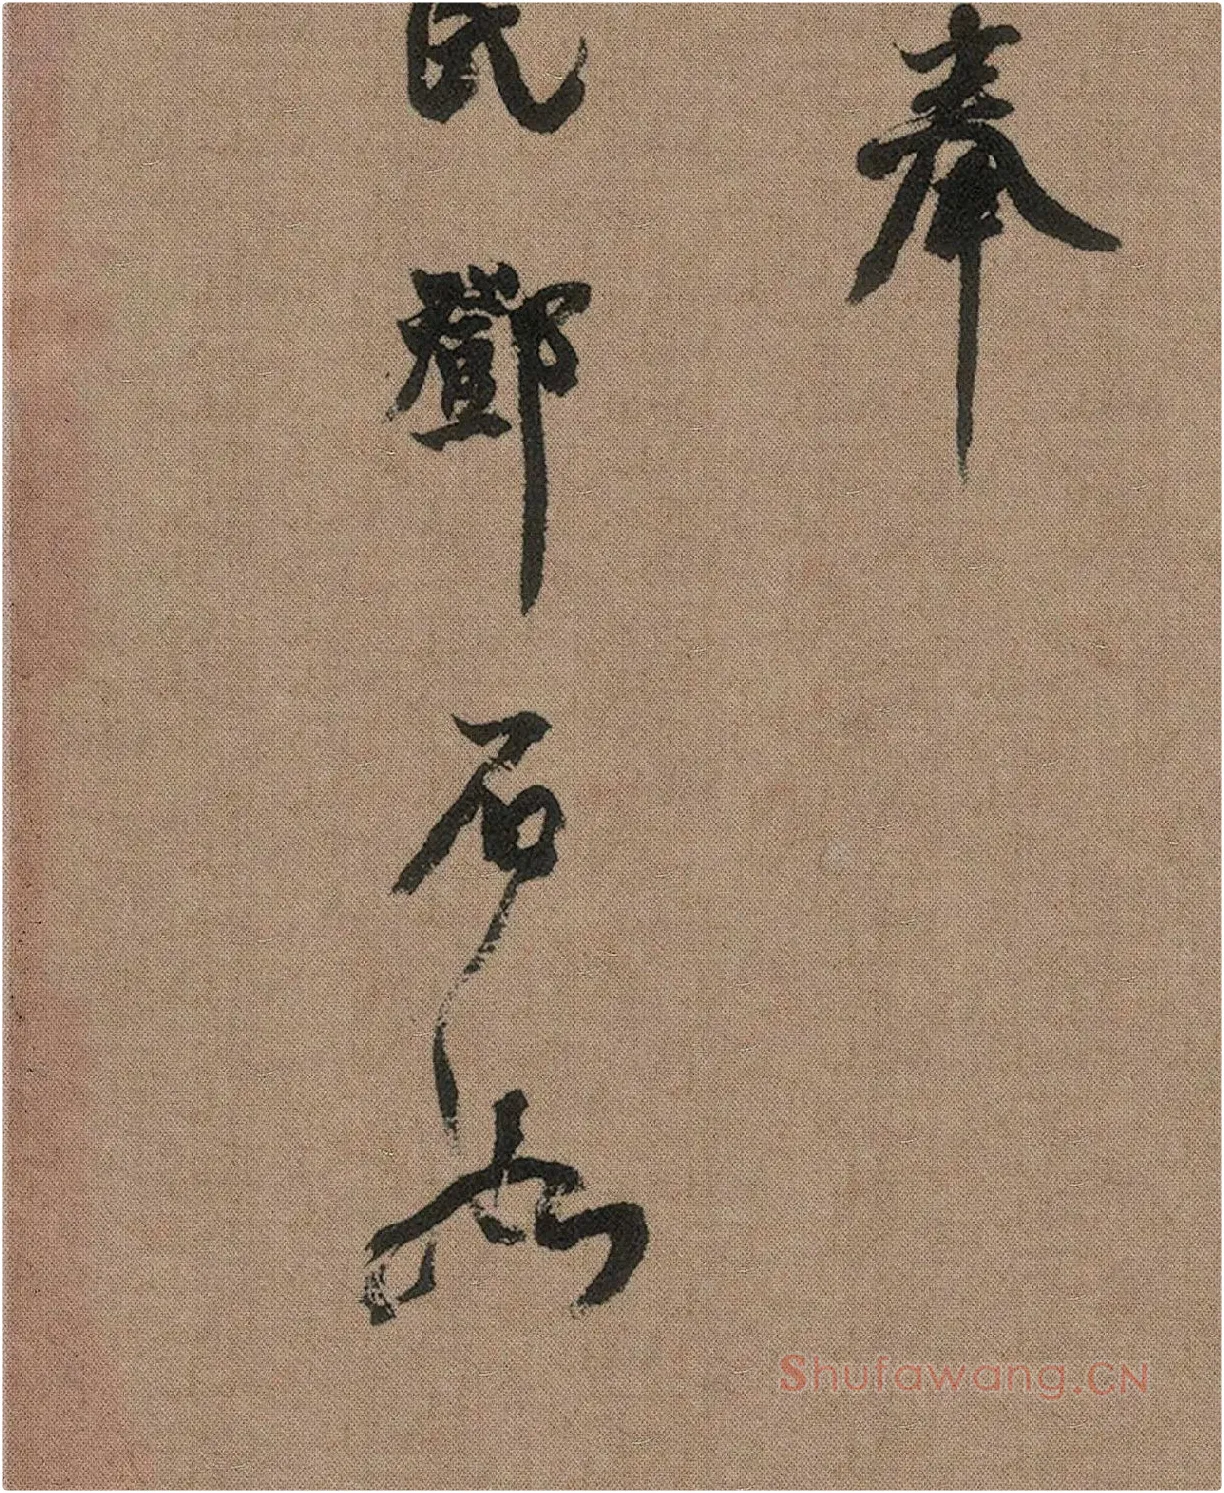 奉
民鄧石如
Shufawang.CN